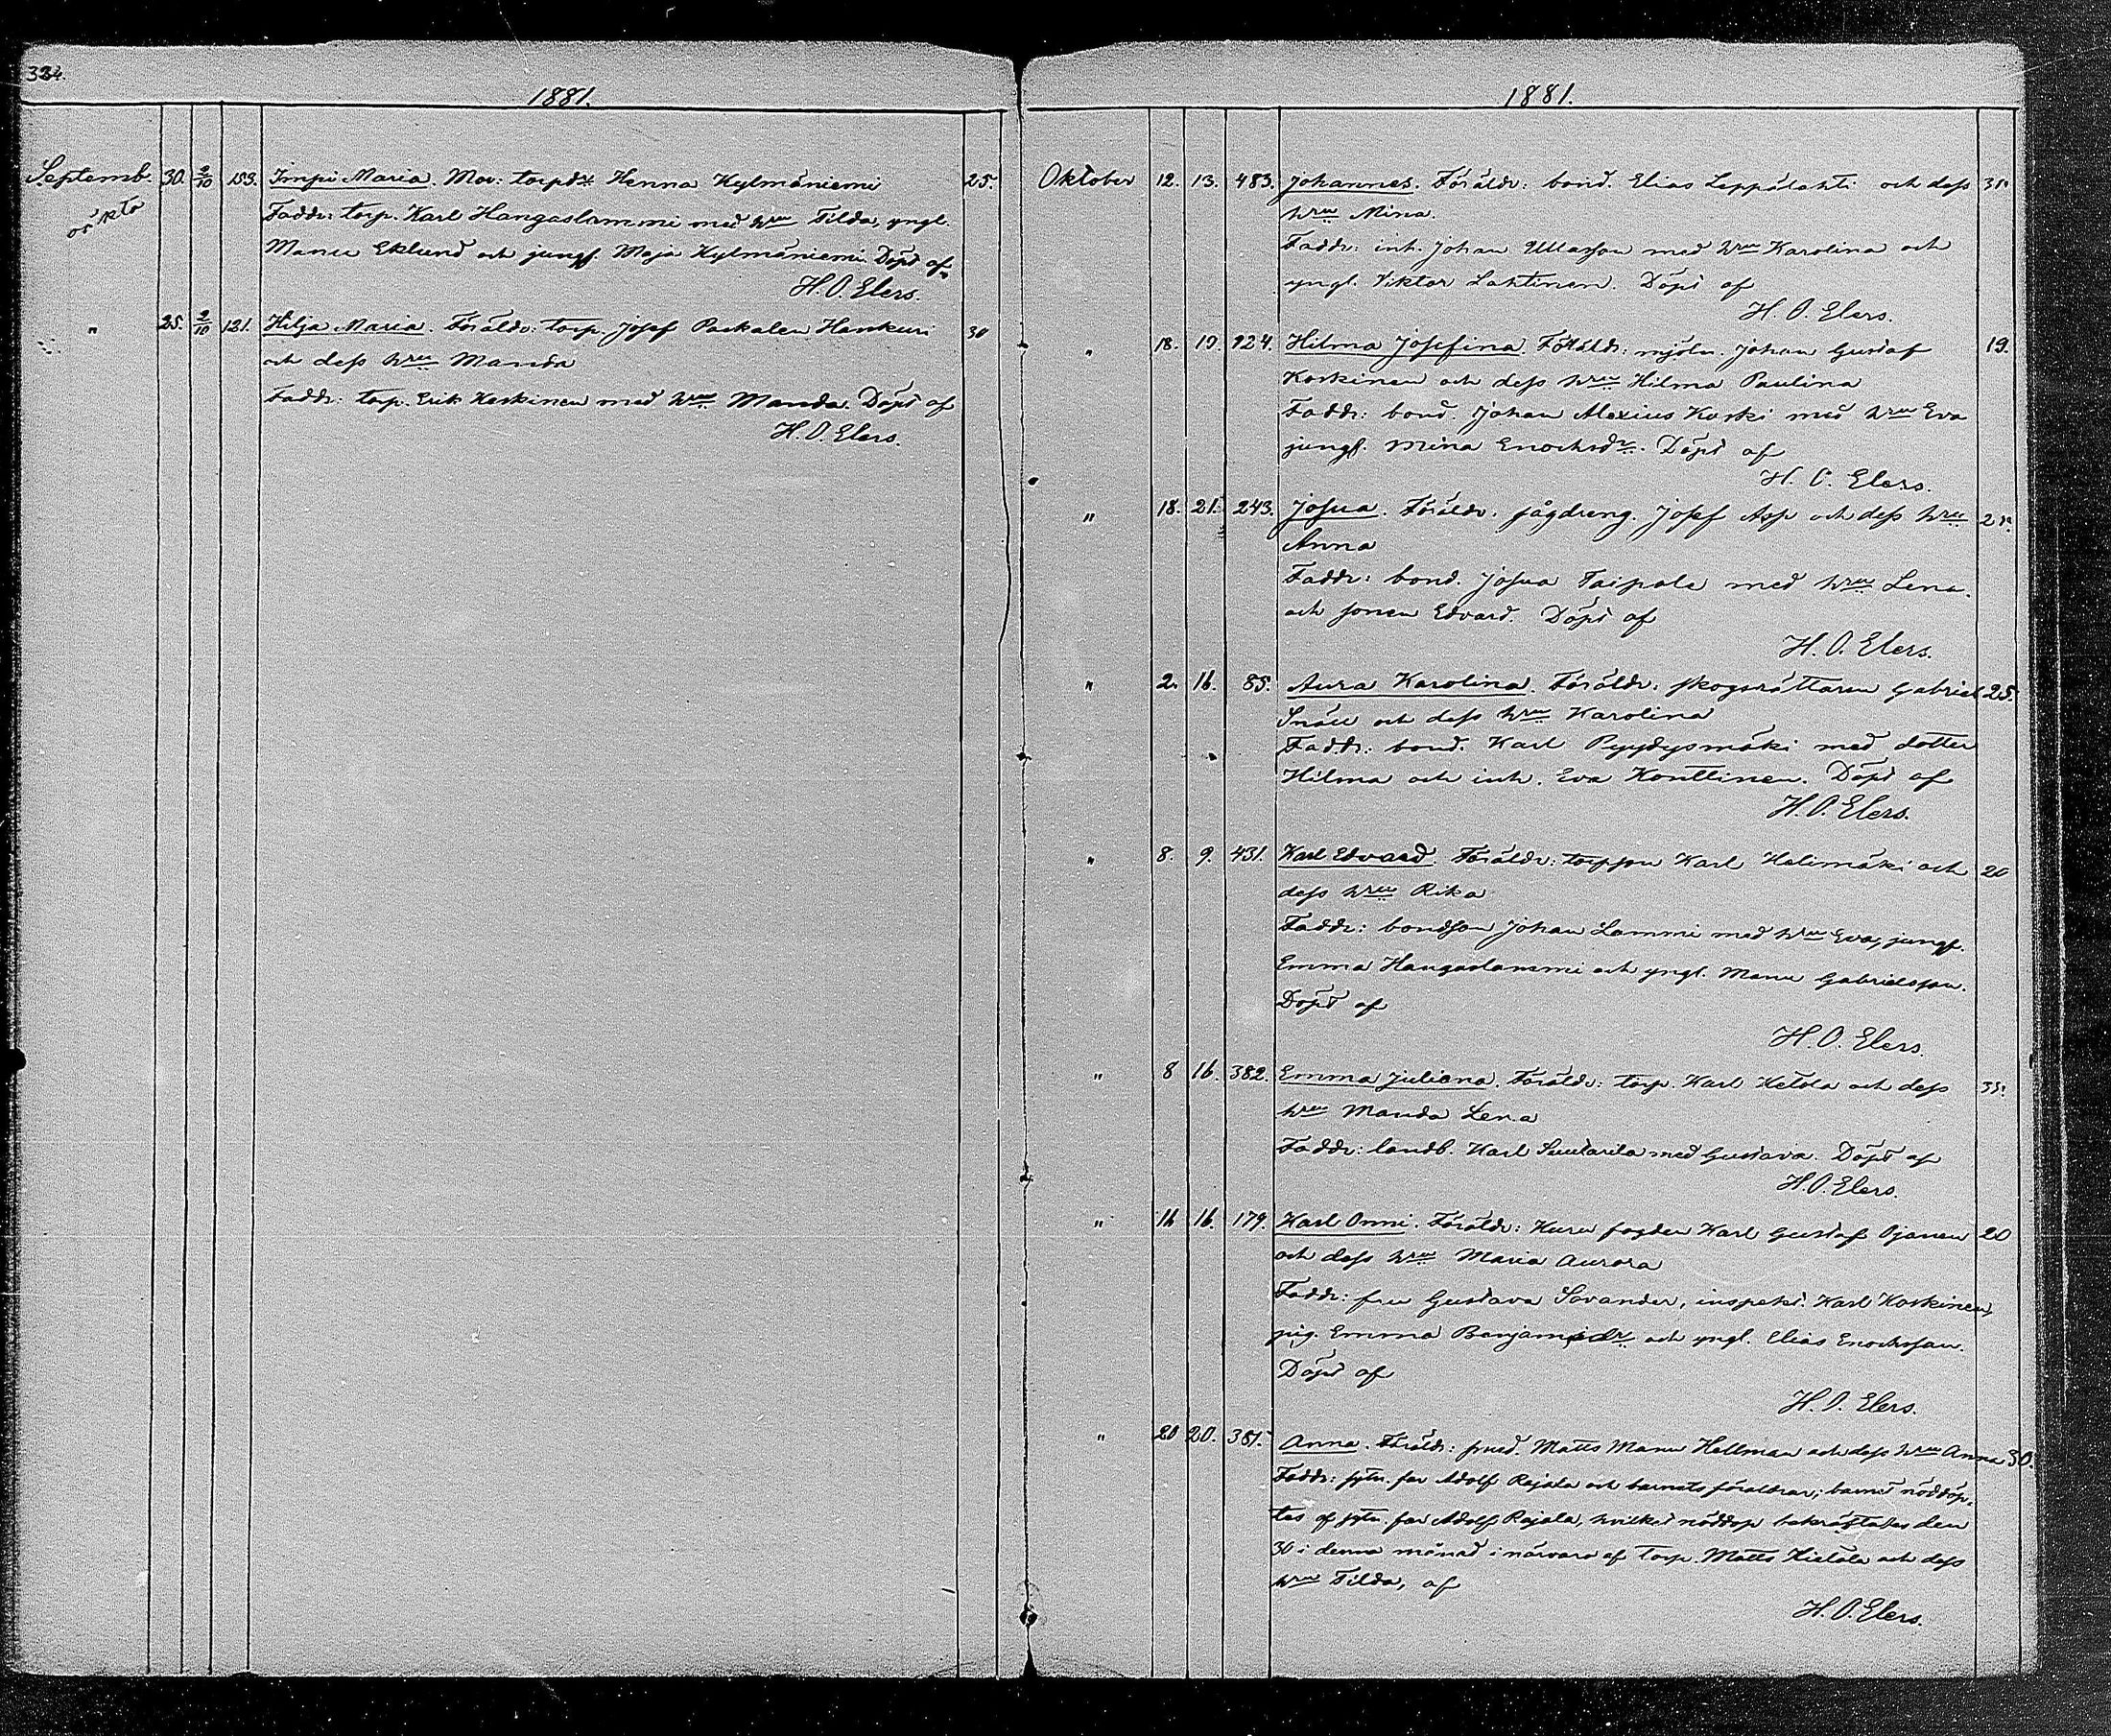 334.
1881.
Septemb. 30. 2/10 153. Impi Maria. Mor: torpdr Henna Kylmäniemi 25.
oäkta
Faddr: torp. Karl Hangaslammi med hru Tilda, yngl.
Manu Eklund och jungf. Maja Kylmäniemi. Döpt af
H. O. Elers.
" 25. 2/10 121. Hilja Maria. Föräldr: torp. Josef Packalen Hankuri 30
och dess hru Manda
Faddr: torp. Erik Keskinen med hru Manda. Döpt af
H. O. Elers.
1881.
Oktober 12. 13. 483. Johannes. Föräldr: bond. Elias Leppälahti och dess 31.
hru Mina.
Faddr: inh. Johan Ullasson med hru Karolina och
yngl. Viktor Lahtinen. Döpt af
H. O. Elers.
" 18. 19. 124. Hilma Josefina. Föräldr: mjöln. Johan Gustaf 19.
Koskinen och dess hru Hilma Paulina
Faddr: bond. Johan Alexius Koski med hru Eva
jungf. Mina Enochsdr. Döpt af
H. O. Elers.
" 18. 21. 243. Josua. Föräldr. sågdreng. Josef Asp och dess hru 21.
Anna
Faddr: bond. Josua Taipale med hru Lena.
och sonen Edvard. Döpt af
H. O. Elers.
" 2. 16. 85. Aura Karolina. Föräldr: skogsrättaren Gabriel 25.
Snäll och dess hru Karolina
Faddr: bond. Karl Pyydysmäki med dotter
Hilma och inh. Eva Konttinen. Döpt af
H. O. Elers.
" 8. 9. 431. Karl Edvard. Föräldr: torpson Karl Halimäki och 20
dess hru Rika
Faddr: bondson Johan Lammi med hru Eva, jungf.
Emma Hangaslammi och yngl. Manu Gabrielsson.
Döpt af
H. O. Elers.
" 8 16. 382. Emma Juliana. Föräldr: torp. Karl Ketola och dess 35.
hru Manda Lena
Faddr: landb. Karl Suutarila med Gustava. Döpt af
H. O. Elers.
" 16 16. 179. Karl Onni. Föräldr: Kuru fogden Karl Gustaf Ojanen 20
och dess hru Maria Aurora
Faddr: fru Gustava Savander, inspekt. Karl Koskinen,
pig. Emma Benjamsdr och yngl. Elias Enochsson.
Döpt af
H. O. Elers.
" 20 20. 381. Anna. Föräldr: smed. Matts Manu Hellman och dess hru Anna 30.
Faddr: sytn. far Adolf Rajala och barnets föräldrar; barnet nöddöp-
tes af sytn. far Adolf Rajala, hvilket nöddop bekräftades den
30 i denna månad i närvaro af torp. Matts Kietöla och dess
hru Tilda, af
H. O. Elers.